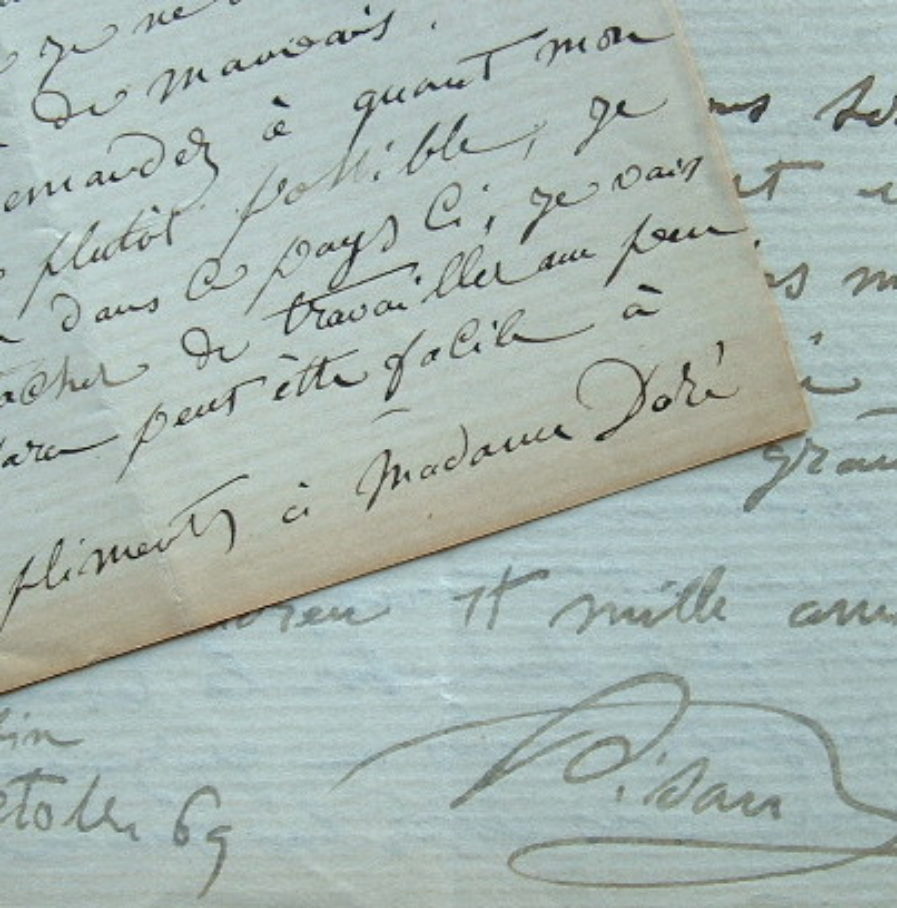 je ne
de mauvais.
emandez à quant mon
plutôt possible, je
dans ce pays ci, je vais
tacher de travailler un peu.
peut être facile à
pliments à Madame Doré
ns
t
s
gran
et mille am
in
ctobre 69
Pisan